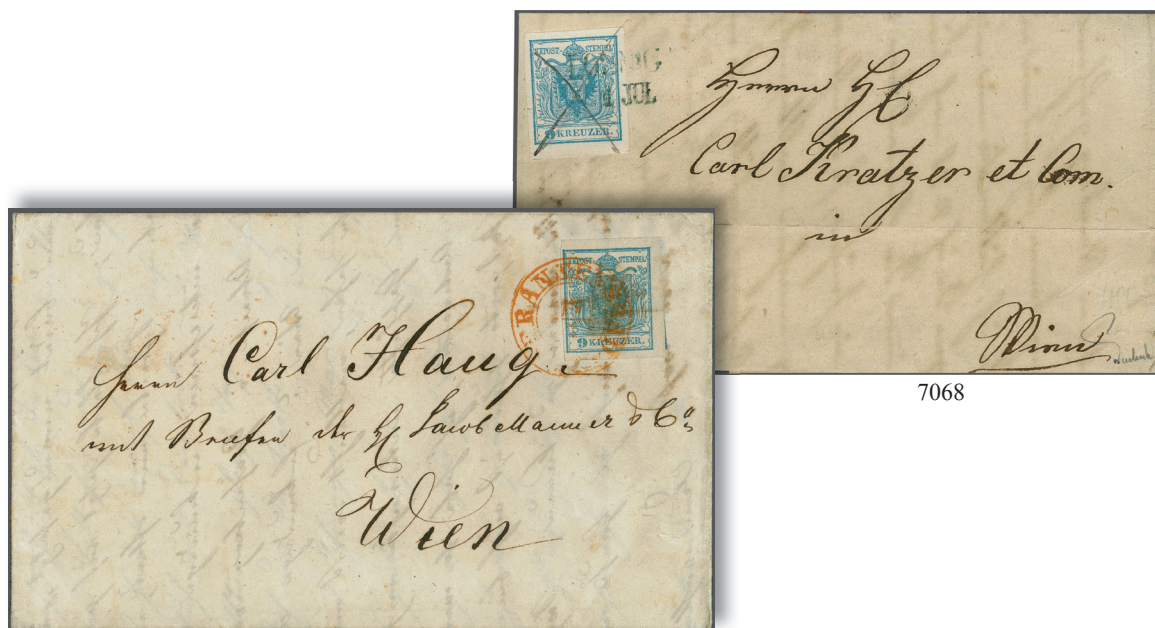 KKPOST-STEMPEL
JUL
9 KREUZER.
Herrn
Carl Kratzer et Com.
in
Wien
7068
KKPOST-STEMPEL
9 KREUZER.
Herrn Carl Haug.
mit Briefen der H Jacob Maurer & Co
Wien